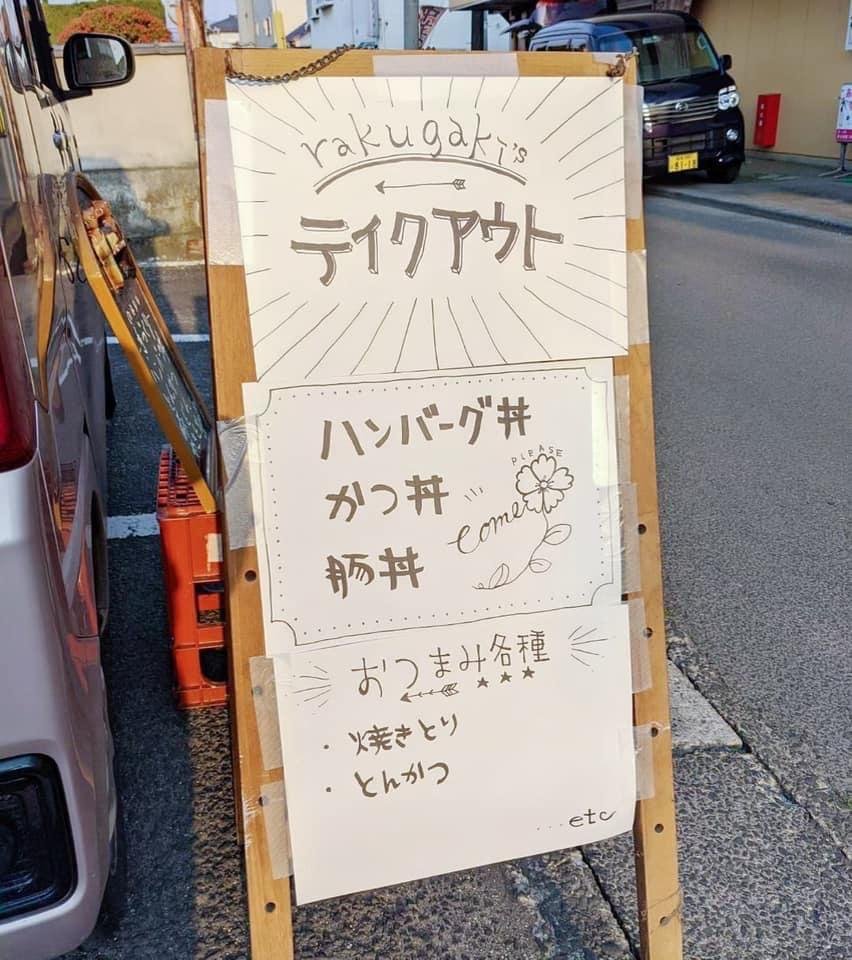 rakugaki's
テイクアウト
ハンバーグ丼
かつ丼
豚丼
PLEASE
come!
おつまみ各種
・焼きとり
・とんかつ
...etc